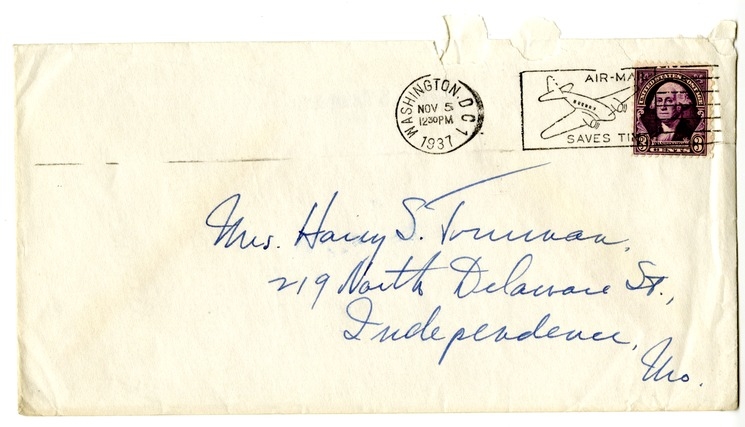 WASHINGTON, D C 1
NOV 5
12 30 PM
1937
AIR-MA
SAVES TI
UNITED STATES POSTAGE
3 3
Mrs. Harry S. Truman,
219 North Delaware St.,
Independence,
Mo.